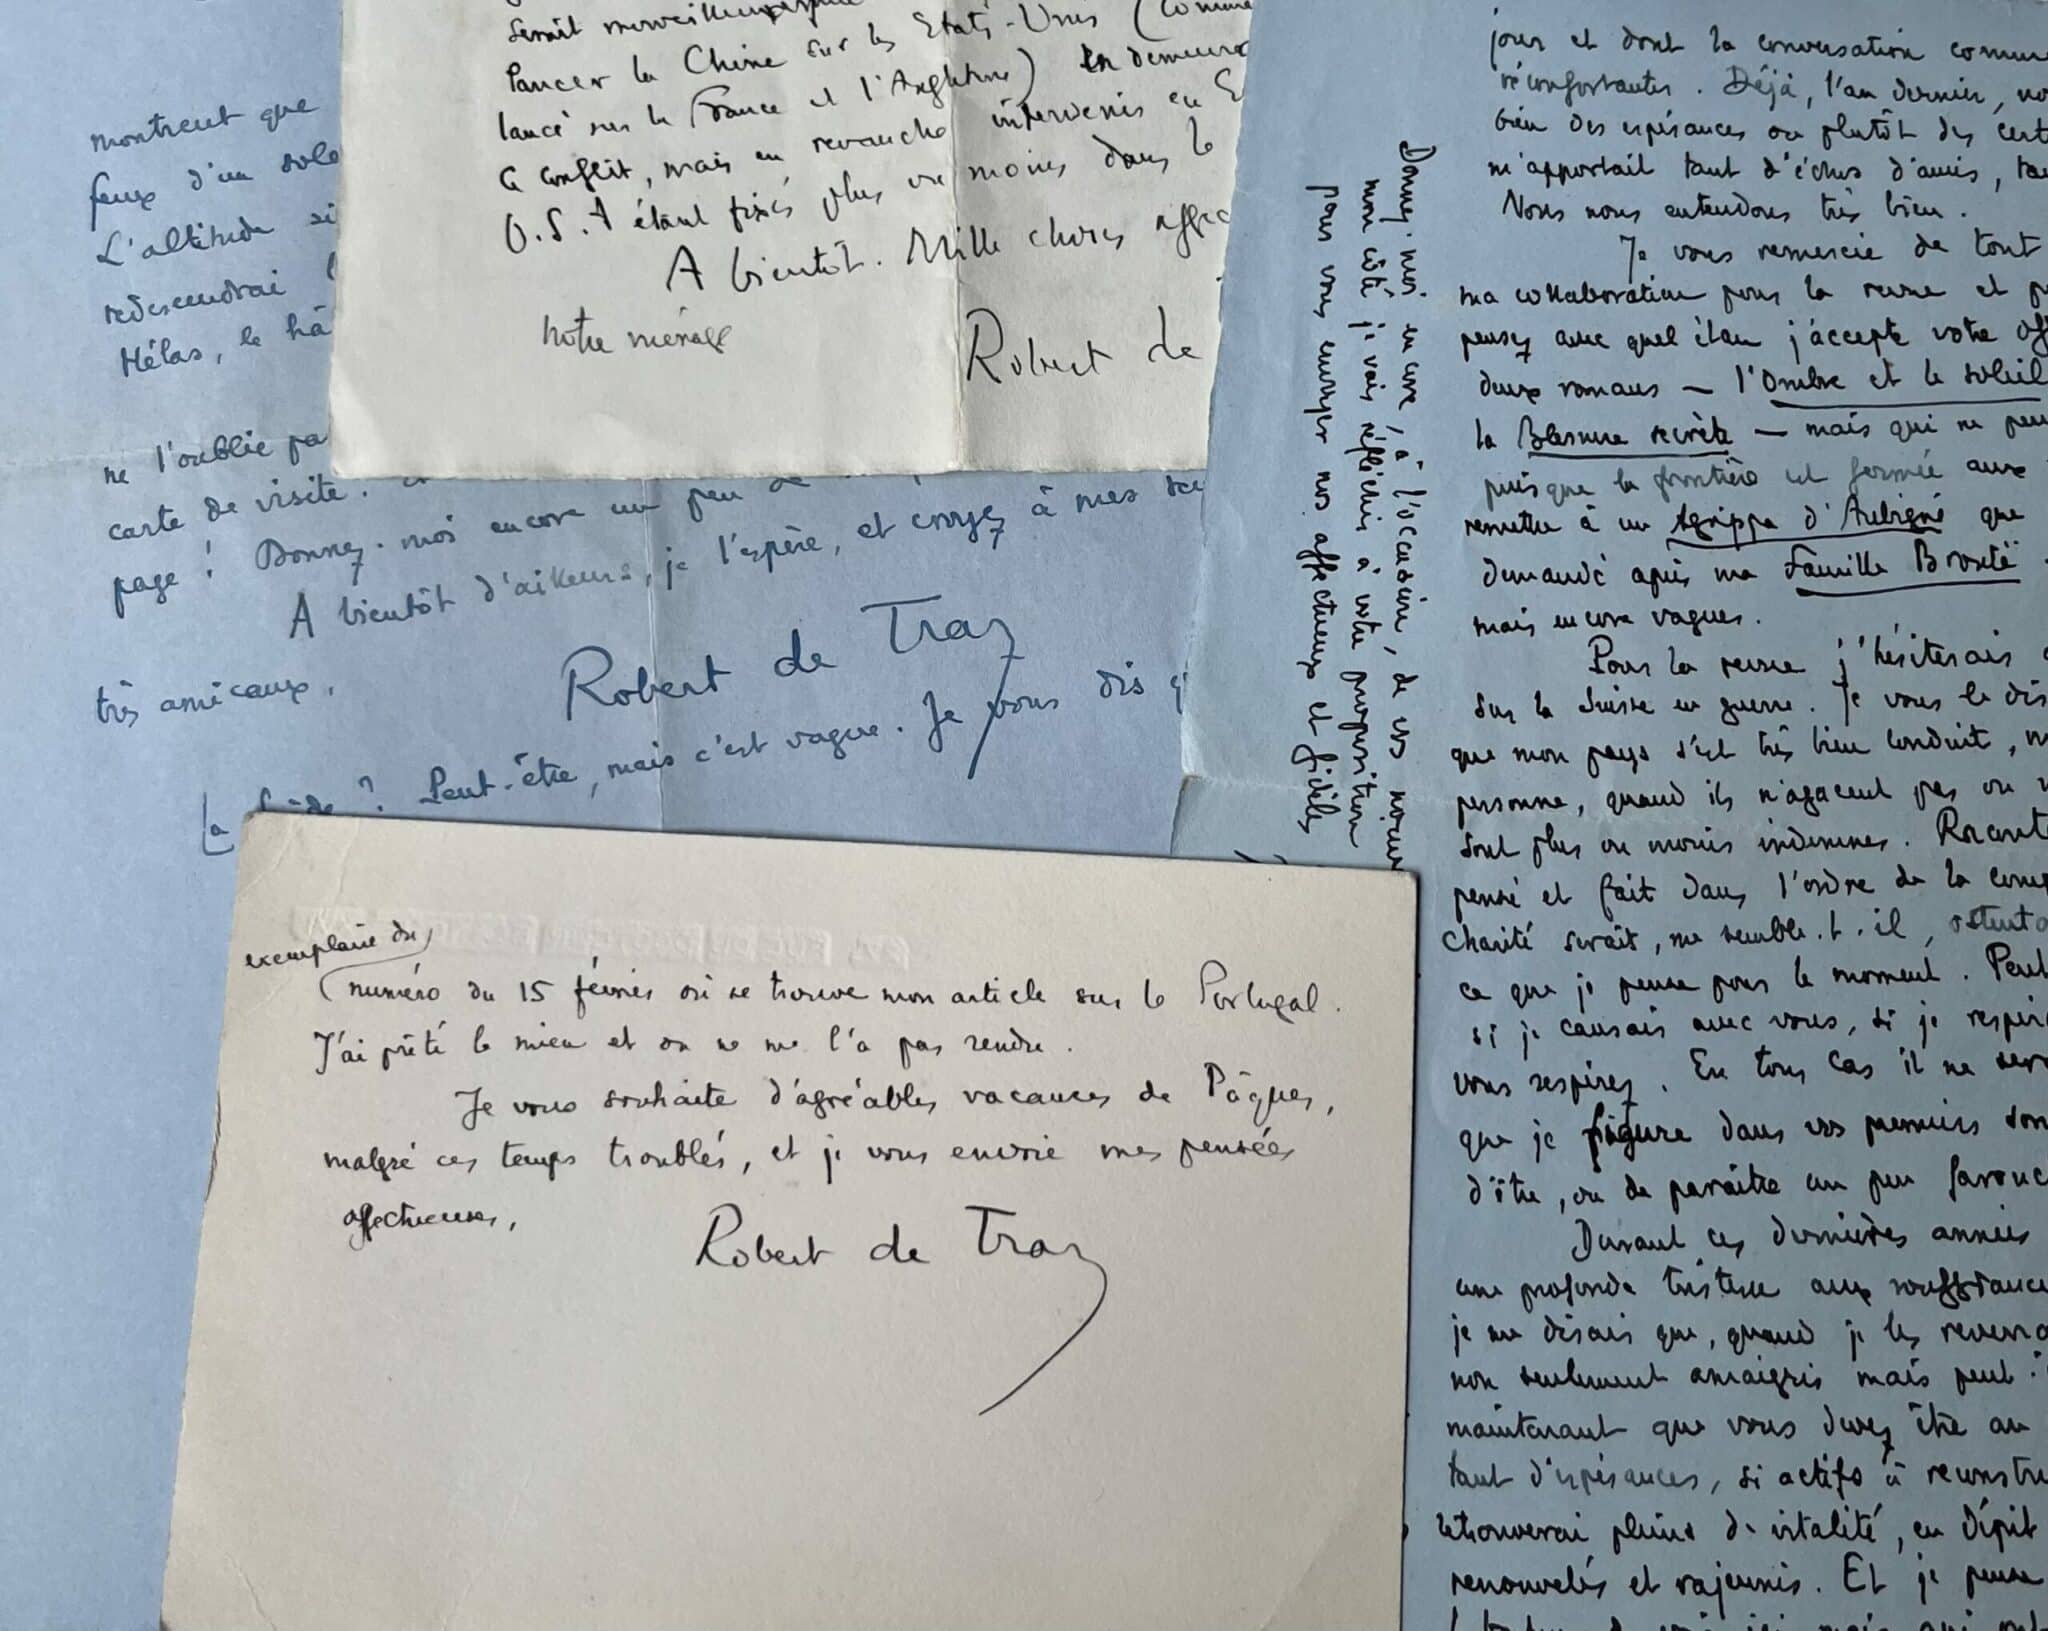 montrent que
feux d'un sole
L'altitude si
redescendrai
Hélas, le hâ
ne l'oublie pa
carte de visite.
page ! Donnez-moi encore un peu de
A bientôt d'ailleurs, je l'espère, et croyez à mes se
très amicaux,
Robert de Traz
La ? Peut-être, mais c'est vague. Je vous dis q
serait merveilleux
lancer la Chine sur les Etats-Unis (comme
lancé sur la France et l'Angleterre) en demeura
ce conflit, mais en revanche intervenir en E
U.S.A étant fixés plus ou moins dans le
A bientôt. Mille choses affec
notre ménage
Robert de
exemplaire du
numéro du 15 février où se trouve mon article sur le Portugal.
J'ai prêté le mien et on ne me l'a pas rendu.
Je vous souhaite d'agréables vacances de Pâques,
malgré ces temps troublés, et je vous envoie mes pensées
affectueuses,
Robert de Traz
Donnez-moi encore, à l'occasion, de vos nouve
mon côté je vais réfléchir à votre proposition
pour vous envoyer nos affectueux et fidèles
jour et dont la conversation comme
réconfortantes. Déjà, l'an dernier, no
bien des espérances ou plutôt des cert
m'apportait tant d'échos d'amis, ta
Nous nous entendons très bien.
Je vous remercie de tout
ma collaboration pour la revue et p
pensez avec quel élan j'accepte votre off
deux romans — l'Ombre et le soleil
la Blessure secrète — mais qui ne peu
puisque la frontière est fermée aux
remettre à un Agrippa d'Aubigné que
demandé après ma Famille Brontë
mais encore vagues.
Pour la revue j'hésiterais
sur la Suisse en guerre. Je vous le dis
que mon pays s'est très bien conduit, m
personne, quand ils n'agacent pas ou
sont plus ou moins indemnes. Raconte
pensé et fait dans l'ordre de la comp
charité serait, me semble-t-il, ostenta
ce que je pense pour le moment. Peut
si je causais avec vous, si je respir
vous respirez. En tous cas il ne sera
que je figure dans vos premiers som
d'être, ou de paraître un peu farouc
Durant ces dernières années
une profonde tristesse aux souffrance
je me disais que, quand je les reverra
non seulement amaigris mais peut-
maintenant que vous devez être au
tant d'espérances, si actifs à reconstru
retrouverai pleins de vitalité, en dépit
renouvelés et rajeunis. Et je pense